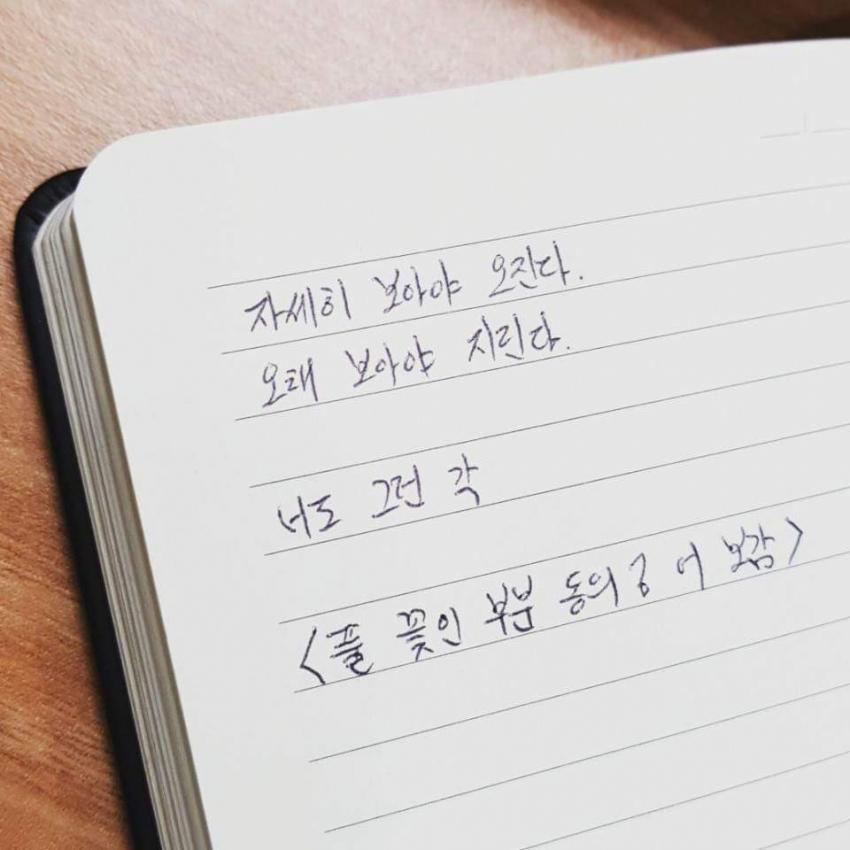 자세히 보아야 오진다.
오래 보아야 지린다.
너도 그런 각
<풀 꽃인 부분 동의? 어 보감>